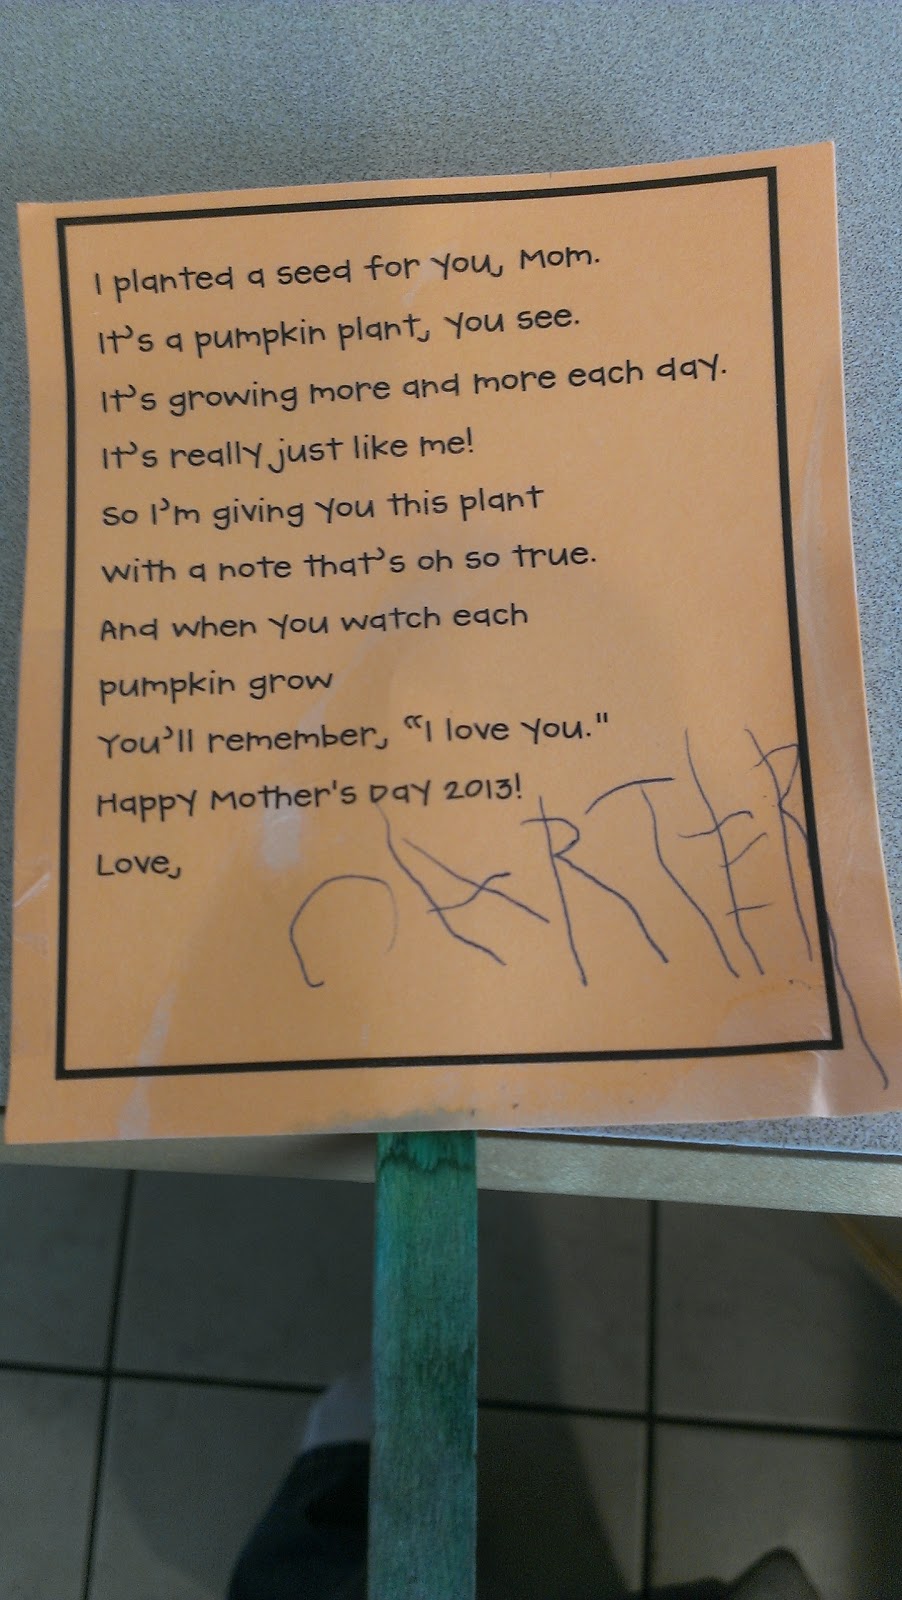 I planted a seed for you, Mom.
It's a pumpkin plant, you see.
It's growing more and more each day.
It's really just like me!
So I'm giving you this plant
with a note that's oh so true.
And when you watch each
pumpkin grow
You'll remember, "I love you."
Happy Mother's Day 2013!
Love,
CARTER